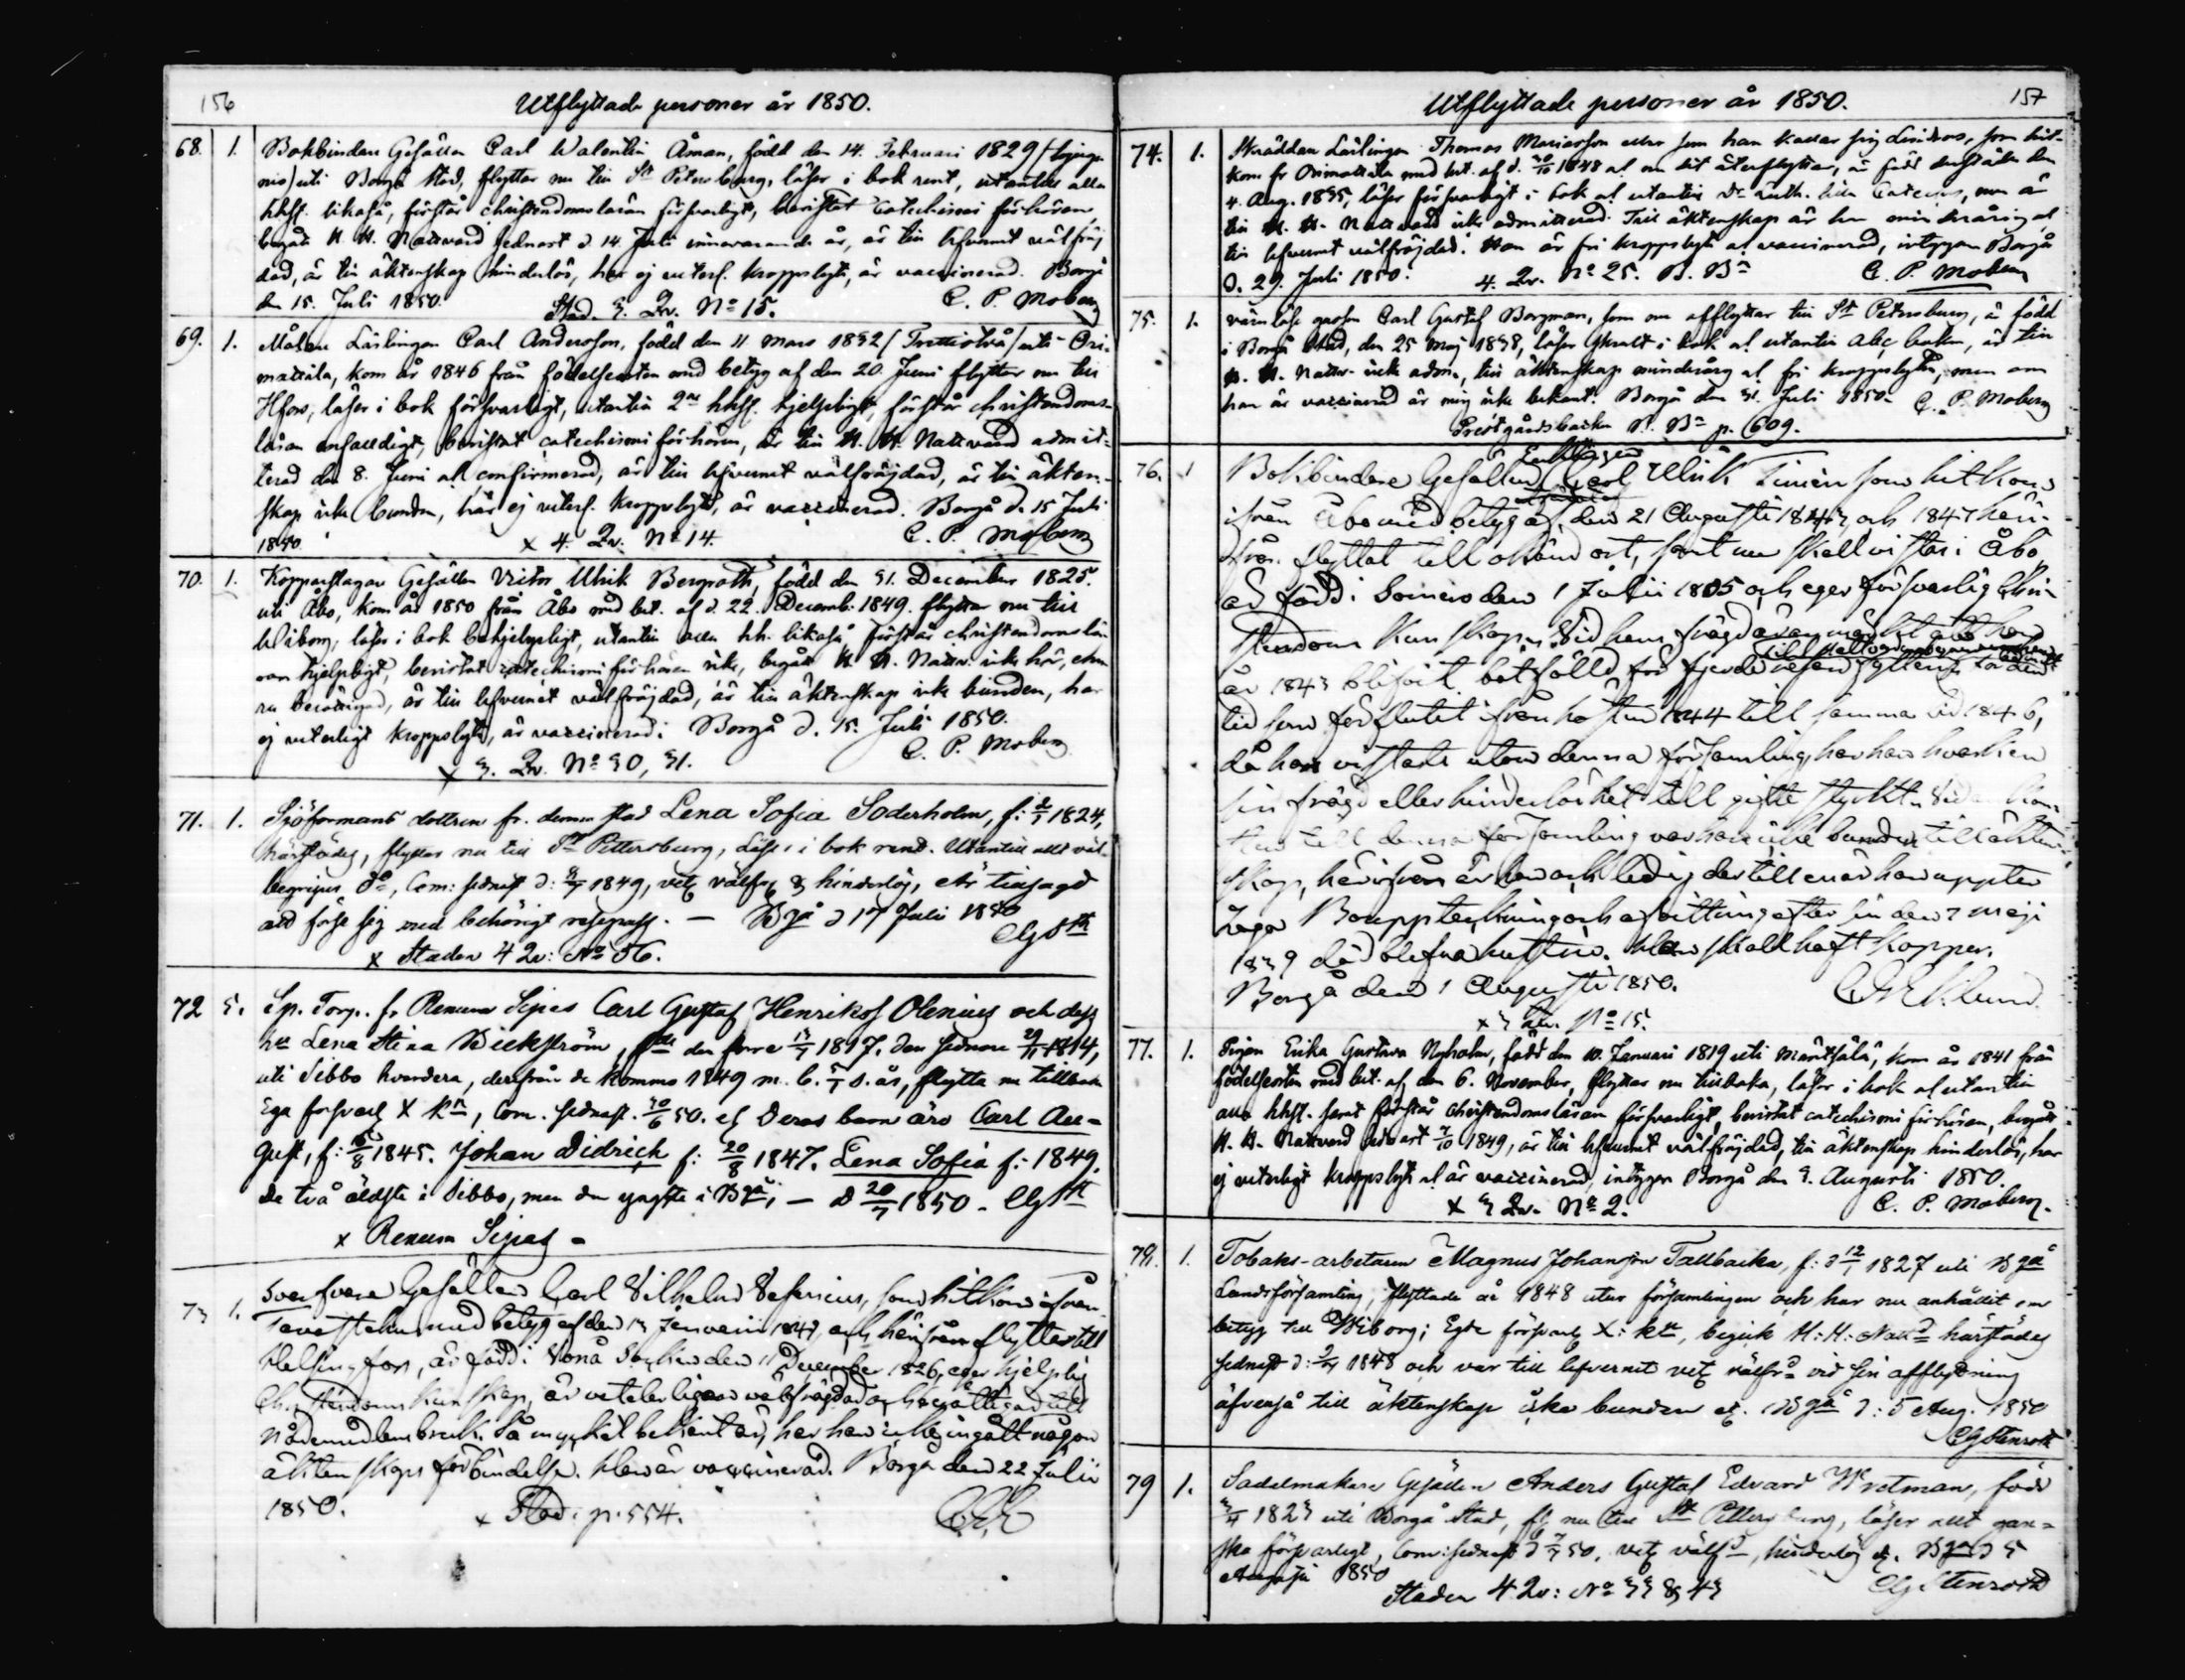 156
Utflyttade personer år 1850.
68. 1. Bokbindare Gesällen Carl Walentin Åman, född den 14. Februari 1829 /tjuge
nio/ uti Borgå stad, flyttar nu till St Petersburg, läser i bok rent, utantill alla
hhss. likaså, förstår christendomsläran försvarligt, bevistat Catechismi förhören,
begått H. H. Nattvard sednast d. 14. Juli innevarande år, är till lefvernet välfräj
dad, är till äktenskap hinderlös, har ej veterl. kroppslyte, är vaccinerad. Borgå
den 15. Juli 1850. Stad. 3. Qv. No 15. C. P. Moberg
69. 1. Målare Lärlingen Carl Andersson, född den 11 Mars 1832 /Trettiotvå/ uti Ori-
mattila, kom år 1846 från födelseorten med betyg af den 20. Juni flyttar nu till
Hfors, läser i bok försvarligt, utantill 2ne hhss. hjelpligt, förstår christendoms-
läran enfaldigt, bevistat catechismi förhören, är till H. H. Nattvard admit-
terad den 8. Juni at confirmerad, är till lefvernet välfräjdad, är till äkten-
skap icke bunden, har ej veterl. kroppslyte, är vaccinerad. Borgå d. 15 Juli
1850. x 4. Qv. No 14. C. P. Moberg
70. 1. Kopparslagare Gesällen Victor Ulrik Bergroth, född den 31. December 1825
uti Åbo, kom år 1850 från Åbo med bet. af d. 22. Decemb. 1849. flyttar nu till
Wiborg, läser i bok behjelpligt, utantill alla hh. likaså förstår christendomslä-
ran hjelpligt, bevistat catechismi förhören icke, begått H. H. Nattv. icke här, ehu
ru berättigad, är till lefvernet välfräjdad, är till äktenskap icke bunden, har
ej veterligt kroppslyte, är vaccinerad: Borgå d. 15. Juli 1850.
x 3. Qv. No 30, 31. C. P. Moberg
71. 1. Sjöformans dottren fr. denna stad Lena Sofia Soderholm, f: 1824,
härstädes, flyttar nu till St Pettersburg, Läser i bok rend. Utantill allt väl
begriper do, Com: sednast d: 1849, vet välfr & hinderlös, etc tillsagd
att förse sig med behörigt respass. — Bgå d 17 Juli 1850
x Staden 4 Qv: No 56.
72 5. Sp. Torp. fr Renum Sipas Carl Gustaf Henriksf Olenius och dess
hu Lena Stina Wickström, fde den förre 1817. den sednare 1814,
uti Sibbo hvardera, derifrån de kommo 1849 m. b. d. år, flytta nu tillbaka
Ega försvarl X kn, Com. sednast. 30/6 50. ej Deras barn äro Carl Au-
gust, f: 1845. Johan Didrich f: 20/8 1847. Lena Sofia f: 1849.
de två äldste i Sibbo, men den yngste i Bgå, — d 20/7 1850.
x Renum Sipas
73 1. Svarfvare Gesällen Carl Wilhelm , som hitkom ifrån
Tavastehus med betyg af den 13 Januarii 1847, och härifrån flyttar till
Helsingfors, är född i Vånå Socken den 11 December 1826, eger hjelplig
Christendoms kunskap, är veterligen välfräjdad och berättigad till
nådemedlens bruk. Så mycket bekant är, har han icke ingått någon
äktenskaps förbindelse. Han är vaccinerad. Borgå den 22 Julii
1850. x Stad: p. 554.
157
Utflyttade personer år 1850.
74. 1. Skräddare Lärlingen Thomas Mariasson eller som han kallar sig Lindroos, som hit-
kom fr Orimattila med bet. af d. 1848 at nu dit återflyttar, är född derstädes den
4. Aug. 1835, läser försvarligt i bok at utantill Dr Luth. lilla Cateches, men är
till H. H. Nattvard icke admitterad. Till äktenskap är han minderårig at
till lefvernet välfräjdad. Han är fri kroppslyte at vaccinerad, intygar Borgå
d. 29. Juli 1850. 4. Qv. No 25. C. P. Moberg
75. 1. värnlöse gossen Carl Gustaf Borgman, som nu afflyttar till St Petersburg, är född
i Borgå stad, den 25 Maj 1838, läser i bok at utantill abc boken, är till
H. H. Nattv. icke adm., till äktenskap minderårig at fri kroppslyte, men om
han är vaccinerad är mig icke bekant. Borgå den 31. Juli 1850. C. P. Moberg
Prestgårdsbacken p. 609.
76. 1 Bokbindare Gesällen Carl Ulrik Limén som hitkom
ifrån Åbo med betyg af den 21 Augusti 1843, och 1847 häri-
från flyttat till okänd ort, samt nu skall vistas i Åbo,
är född i Somero den 1 Julii 1805 och eger försvarlig Chri-
stendoms kunskap. Vid hans frägd är anmärkt att han
år 1843 blifvit botfälld för fjerde resan fylleri. För den
tid som förflutit ifrån hösten 1844 till samma tid 1846,
då han vistats utom denna församling, har han hvarken
sin frägd eller hinderlöshet till gifte styrkt. Vid han
kom till denna församling var han icke bunden till äkten-
skap, härifrån är han ock ledig dertill när han uppte
ragar Bouppteckning och afvittring efter sin den 7 Maji
1839 döda hustru. Han skall haft koppor.
Borgå den 1 Augusti 1850.
x 3 Qv. No 15.
77. 1. Pigan Erika Gustava Nyholm, född den 10. Januari 1819 uti Mäntsälä, kom år 1841 från
födelseorten med bet. af den 6. November, flyttar nu tillbaka, läser i bok at utantill
alla hhss. samt förstår Christendomsläran försvarligt, bevistat catechismi förhören, begått
H. H. Nattvard sednast 7/10 1849, är till lefvernet välfräjdad, till äktenskap hinderlös, har
ej veterligt kroppslyte at är vaccinerad, intygar Borgå den 3. Augusti 1850.
x 3 Qv. No 2. C. P. Moberg.
78. 1. Tobaks-arbetaren Magnus Johansson Tallbacka, f: d 12/1 1827 uti Bgå
Landsförsamling, flyttade år 1848 utur församlingen och har nu anhållit om
betyg till Wiborg; Egde försvarl X: kn, begick H: H: Nattvd härstädes
sednast d: 1848 och var till lefvernet vet välfrd vid sin afflyttning
äfvenså till äktenskap icke bunden etc. Bgå d: 5 Aug. 1850
CG Stenroth
79 1. Sadelmakare Gesällen Anders Gustaf Edvard Wretman, född
1823 uti Borgå Stad, fl nu till St Pettersburg, läser allt gan-
ska försvarligt, Com: sednast d 50. vet välfd, hinderlös etc. Bgå d 5
Augusti 1850 Staden 4 Qv: No 33 & 43 CG Stenroth